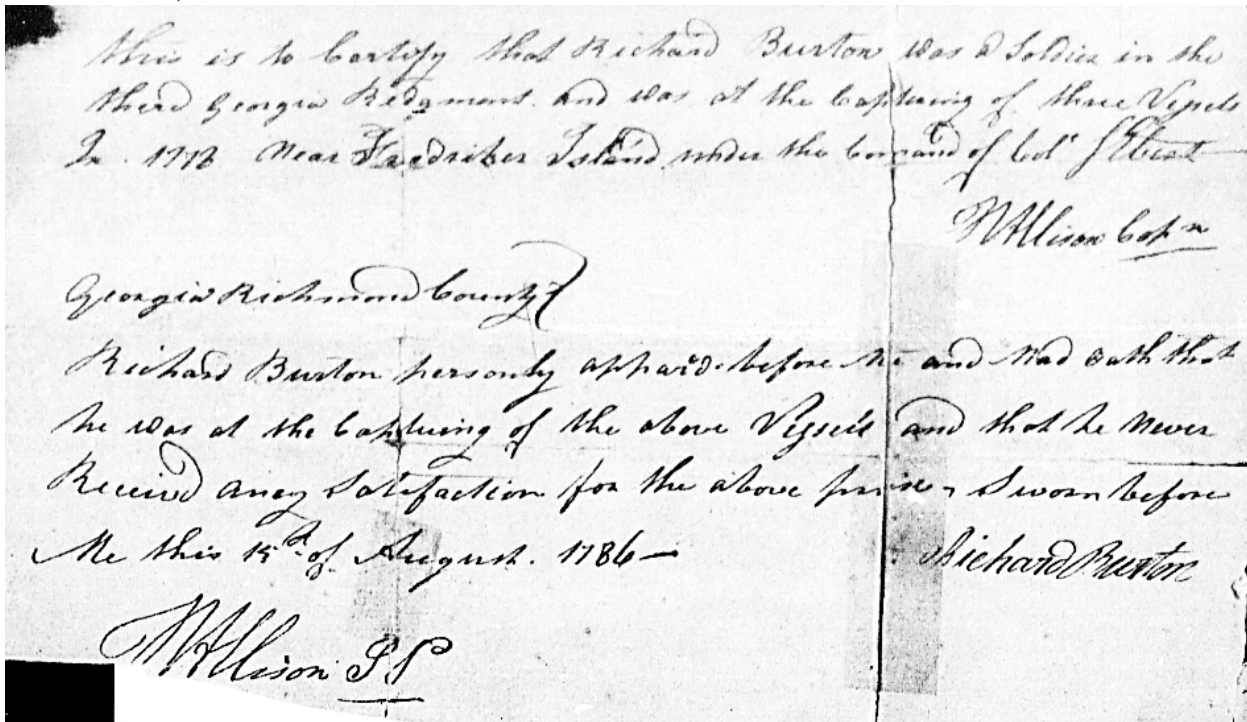 this is to Certify that Richard Burton was a Soldier in the
therd Georgia Regament and was at the Captuering of three Vessels
In 1778 Near Fredriker Island under the Comand of Col.ⁿ S Elbert
W Allison Capⁿ
Georgia Richmond County
Richard Burton personly appaird before Me and Mad oath that
he was at the Captuering of the above Vessels and that he Never
Received aney Satisfaction for the above prise Sworn before
Me this 15 of August. 1786 —
Richard Burton
W Allison J P